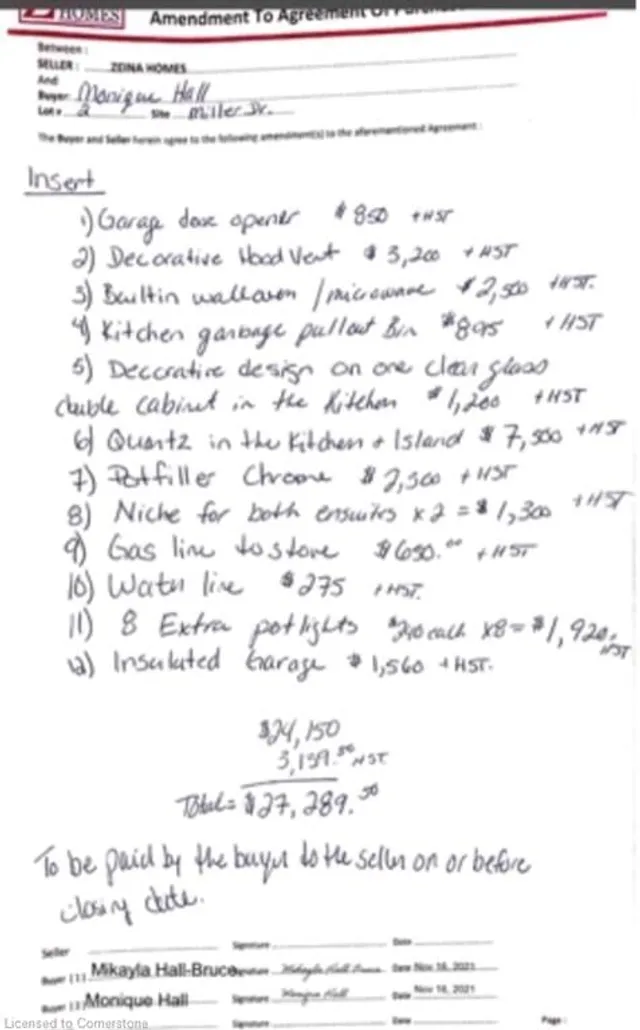 HOMES Amendment To Agreement Of Purchase
Between :
SELLER : ZEINA HOMES
And
Buyer: Monique Hall
Lot # 2 Site Miller Dr.
The Buyer and Seller herein agree to the following amendment(s) to the aforementioned Agreement :
Insert
1) Garage door opener $850 + HST
2) Decorative Hood Vent $3,200 + HST
3) Builtin walloven / microwave $2,500 + HST.
4) Kitchen garbage pullout Bin $895 + HST
5) Decorative design on one clear glass
double cabinet in the Kitchen $1,200 + HST
6) Quartz in the Kitchen + Island $7,500 + HST
7) Potfiller Chrome $2,500 + HST
8) Niche for both ensuites x 2 = $1,300 + HST
9) Gas line to stove $650.00 + HST
10) Water line $275 + HST.
11) 8 Extra potlights each x8 = $1,920. HST
12) Insulated Garage $1,560 + HST.
$24,150
3,139.50 HST
Total = $27,289.50
To be paid by the buyer to the seller on or before
closing date.
Seller Signature Date
Buyer (1) Mikayla Hall-Bruce Signature Mikayla Hall Bruce Date Nov 16, 2021
Buyer (2) Monique Hall Signature Monique Hall Date Nov 16, 2021
Licensed to Cornerstone Signature Date Page :